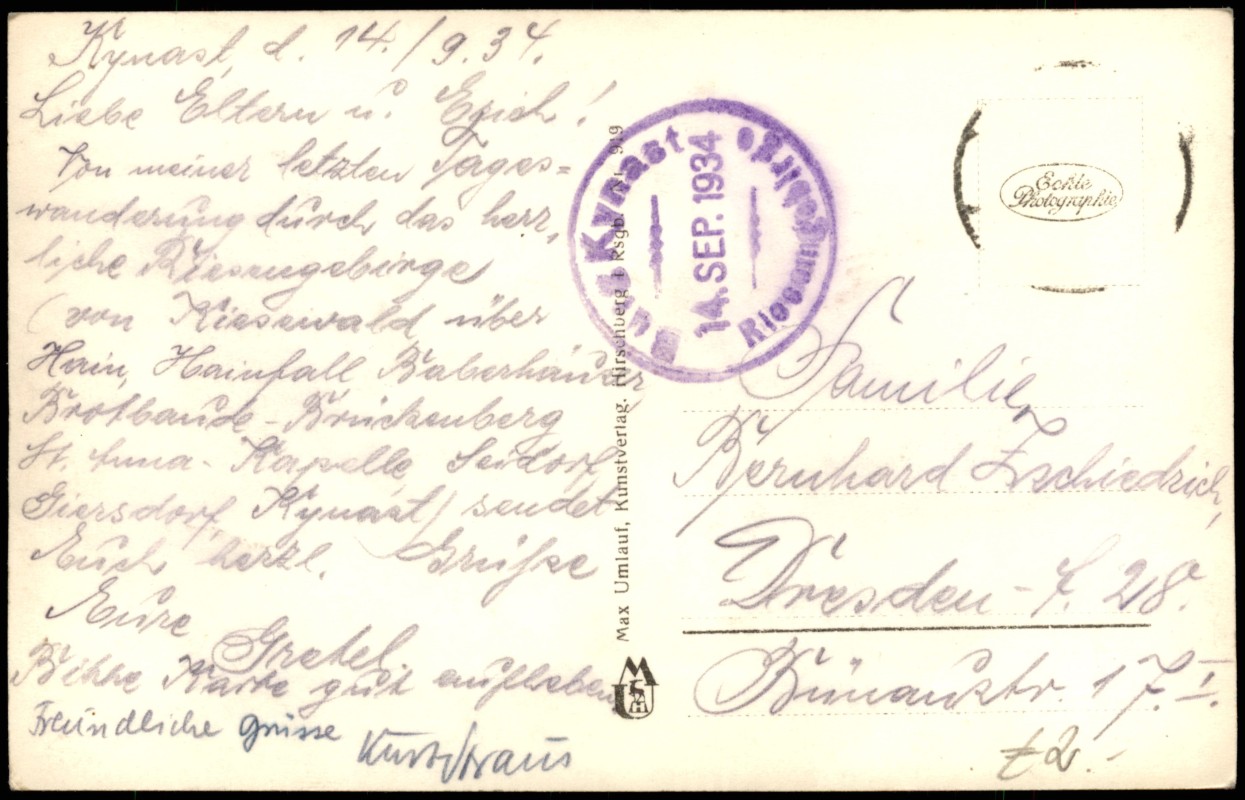 Kynast, d. 14./9.34.
Liebe Eltern u. Erich!
Von meiner letzten Tages=
wanderung durch das herr,
liche Riesengebirge
(von Kiesewald über
Hain, Hainfall Baberhäuser
Brotbaude-Brückenberg
St. Anna-Kapelle, Seidorf
Giersdorf, Kynast) sendet
Euch herzl. Grüße
Eure
Gretel
Bitte Karte gut aufheben
Freundliche Grüsse
Kurt Straus
Max Umlauf, Kunstverlag, Hirschberg i. Rsgb. 919
Burg Kynast
14. SEP. 1934
Riesengebirge
Echte
Photographie
Familie
Bernhard Zschiedrich,
Dresden-A. 28.
Bünaustr. 17.I.
2.-